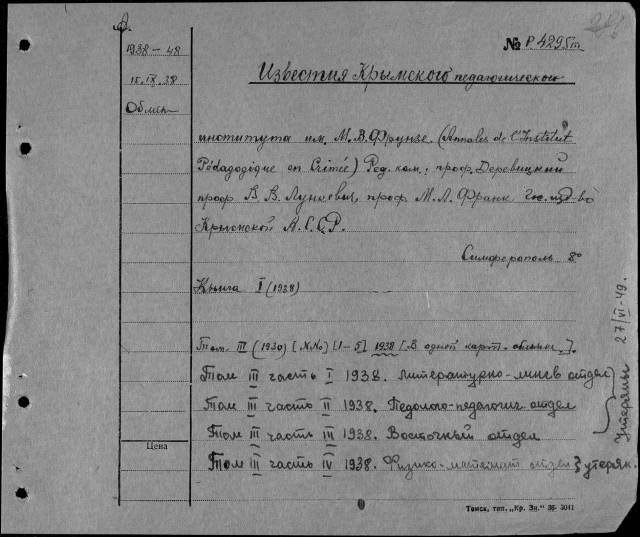 1938 – 48
15.IX.38
Обмен
№ Р 4295 III
Известия Крымского педагогического
института им. М.В.Фрунзе. (Annales de l'Institut
Pédagogique en Crimée) Ред. ком.: проф. Деревицкий
проф В В. Лункевич, проф. М.Л. Франк Гос.изд-во
Крымской А.С.С.Р.
Симферополь 8°
Книга I (1938)
Том. III (1930) [№№] [1–5] 1938 [В одной карт. обложк.].
Том III часть I 1938. Литературно-лингв отдел
Том III часть II 1938. Педолого-педагогич. отдел
Том III часть III 1938. Восточный отдел
Том III часть IV 1938. Физико-математ отдел } утерян.
утеряны 27/VI-49.
Цена
Томск, тип. „Кр. Зн." 36- 3041